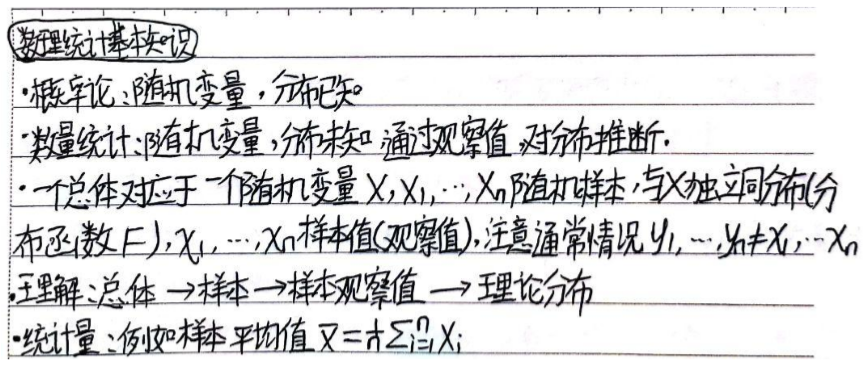 数理统计基本知识
·概率论:随机变量,分布已知
·数量统计:随机变量,分布未知 通过观察值,对分布推断.
·一个总体对应于一个随机变量X,X₁,…,Xₙ随机样本,与X独立同分布(分
布函数F),x₁,…,xₙ样本值(观察值),注意通常情况y₁,…,yₙ≠x₁,…xₙ
·理解:总体→样本→样本观察值→理论分布
·统计量:例如样本平均值 x̅=1/n Σⁿᵢ₌₁Xᵢ